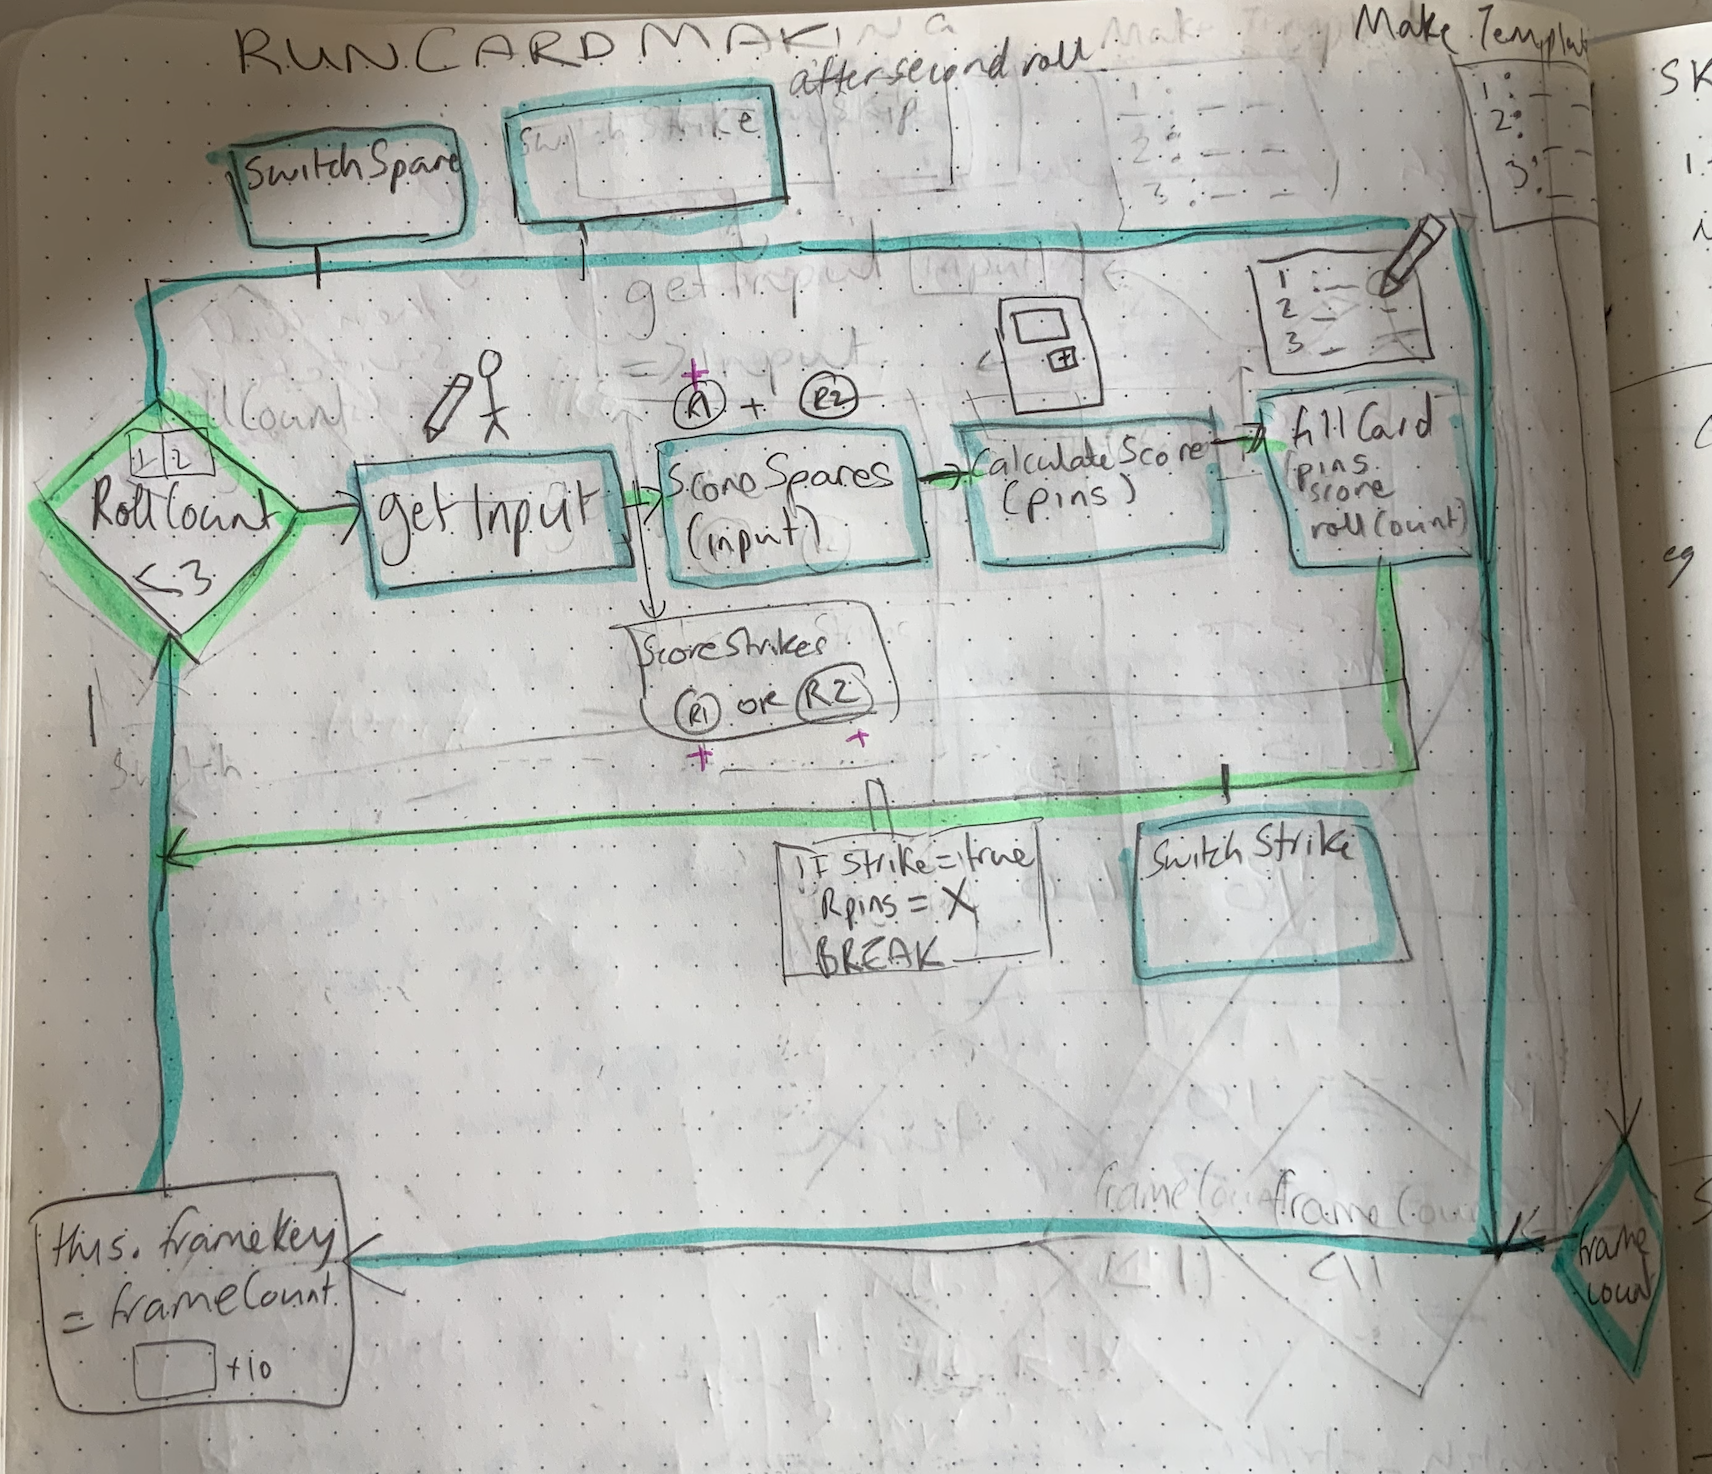 RUN CARD MAKING
Make Template
after second roll
1:
2:
3:
1:
2:
3:
Switch Spare
Switch Strike
get Input
input
=> input
1:
2
3
R1 + R2
RollCount
1 2
RollCount
< 3
get Input
Score Spares
(input)
Calculate Score
(pins)
fill Card
(pins
score
rollCount)
Score Strikes
R1 or R2
Switch
IF Strike = true
Rpins = X
BREAK
Switch Strike
frameCount
frameCount
<11
this.frameKey
= frameCount
+10
frame
count
eg